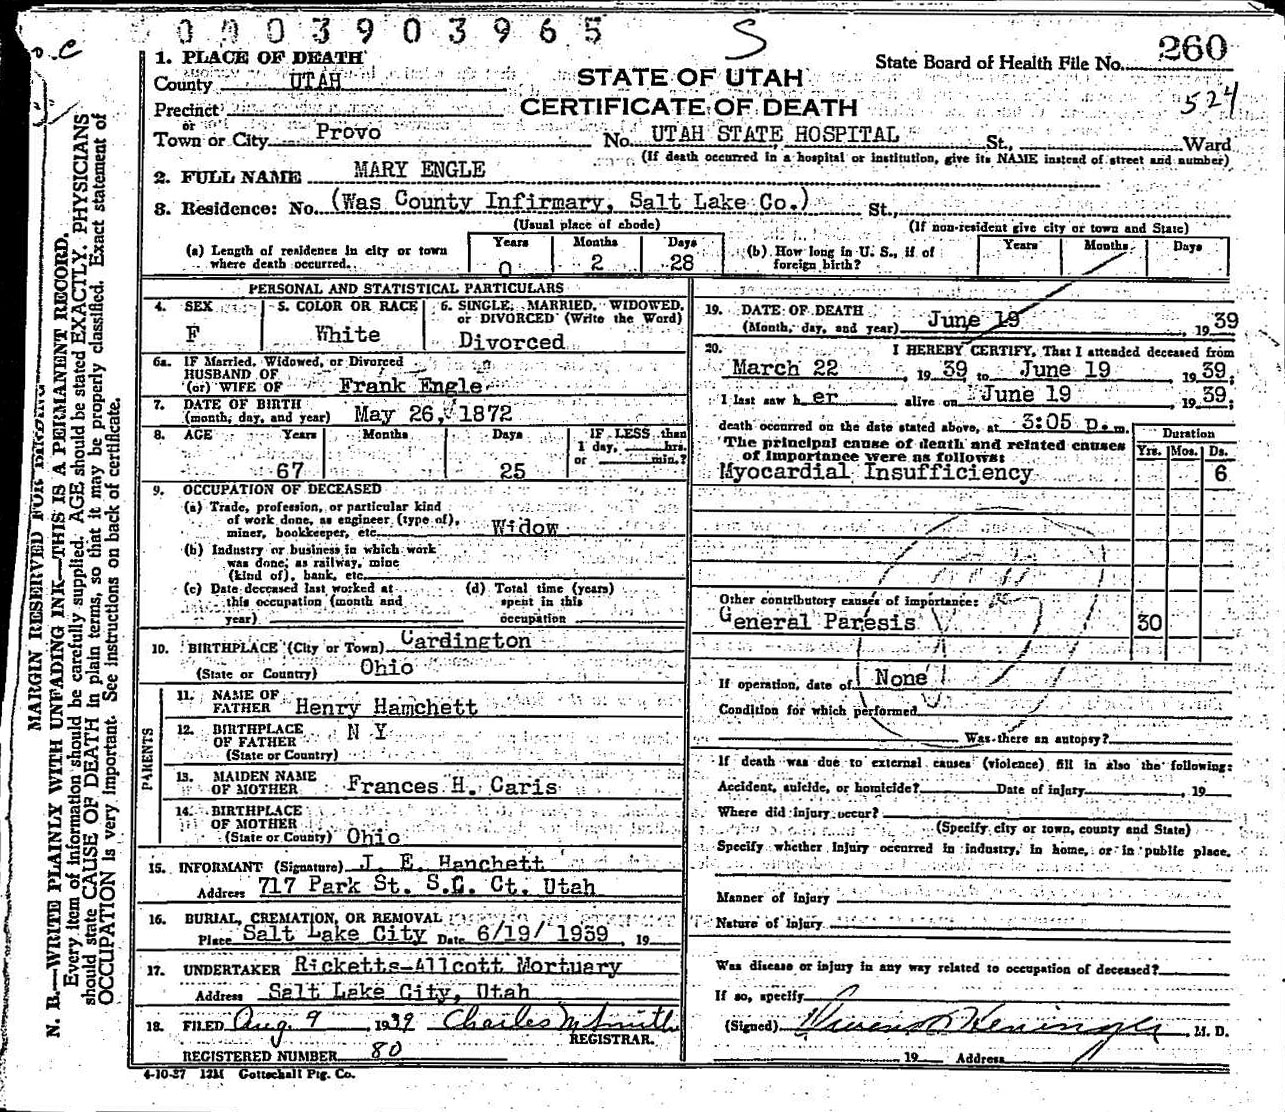 0003903965
S
State Board of Health File No. 260
524
STATE OF UTAH
CERTIFICATE OF DEATH
1. PLACE OF DEATH
County UTAH
Precinct
or
Town or City Provo No. UTAH STATE HOSPITAL St., Ward
(If death occurred in a hospital or institution, give its NAME instead of street and number)
2. FULL NAME MARY ENGLE
3. Residence: No. (Was County Infirmary, Salt Lake Co.) St.,
(Usual place of abode) (If non-resident give city or town and State)
(a) Length of residence in city or town where death occurred. Years 0 Months 2 Days 28
(b) How long in U. S., if of foreign birth? Years Months Days
PERSONAL AND STATISTICAL PARTICULARS
4. SEX F
5. COLOR OR RACE White
6. SINGLE, MARRIED, WIDOWED, or DIVORCED (Write the Word) Divorced
6a. IF Married, Widowed, or Divorced
HUSBAND OF
(or) WIFE OF Frank Engle
7. DATE OF BIRTH
(month, day, and year) May 26, 1872
8. AGE Years 67 Months Days 25 IF LESS than 1 day, hrs. or min.?
9. OCCUPATION OF DECEASED
(a) Trade, profession, or particular kind
of work done, as engineer (type of),
miner, bookkeeper, etc. Widow
(b) Industry or business in which work
was done; as railway, mine
(kind of), bank, etc.
(c) Date deceased last worked at
this occupation (month and
year)
(d) Total time (years)
spent in this
occupation
10. BIRTHPLACE (City or Town) Cardington
(State or Country) Ohio
PARENTS
11. NAME OF
FATHER Henry Hamchett
12. BIRTHPLACE
OF FATHER N Y
(State or Country)
13. MAIDEN NAME
OF MOTHER Frances H. Caris
14. BIRTHPLACE
OF MOTHER
(State or County) Ohio
15. INFORMANT (Signature) J. E. Hanchett
Address 717 Park St. S.L. Ct. Utah
16. BURIAL, CREMATION, OR REMOVAL
Place Salt Lake City Date 6/19/ 1939, 19
17. UNDERTAKER Ricketts-Allcott Mortuary
Address Salt Lake City, Utah
18. FILED Aug 9 1939 Charles M Smith
REGISTRAR.
REGISTERED NUMBER 80
4-10-37 12M Gottschall Ptg. Co.
19. DATE OF DEATH
(Month, day, and year) June 19, 1939
20. I HEREBY CERTIFY, That I attended deceased from
March 22, 1939 to June 19, 1939;
I last saw her alive on June 19, 1939;
death occurred on the date stated above, at 3:05 p.m.
The principal cause of death and related causes
of importance were as follows:
Duration
Yrs. Mos. Ds.
Myocardial Insufficiency 6
Other contributory causes of importance:
General Paresis 30
If operation, date of None
Condition for which performed
Was there an autopsy?
If death was due to external causes (violence) fill in also the following:
Accident, suicide, or homicide? Date of injury, 19
Where did injury occur?
(Specify city or town, county and State)
Specify whether injury occurred in industry, in home, or in public place.
Manner of injury
Nature of injury
Was disease or injury in any way related to occupation of deceased?
If so, specify
(Signed) M. D.
19 Address
MARGIN RESERVED FOR BINDING
N. B.—WRITE PLAINLY WITH UNFADING INK—THIS IS A PERMANENT RECORD.
Every item of information should be carefully supplied. AGE should be stated EXACTLY. PHYSICIANS
should state CAUSE OF DEATH in plain terms, so that it may be properly classified. Exact statement of
OCCUPATION is very important. See instructions on back of certificate.